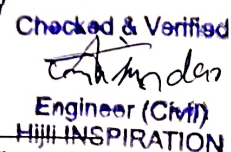 Checked & Verified
Engineer (Civil)
Hijli INSPIRATION